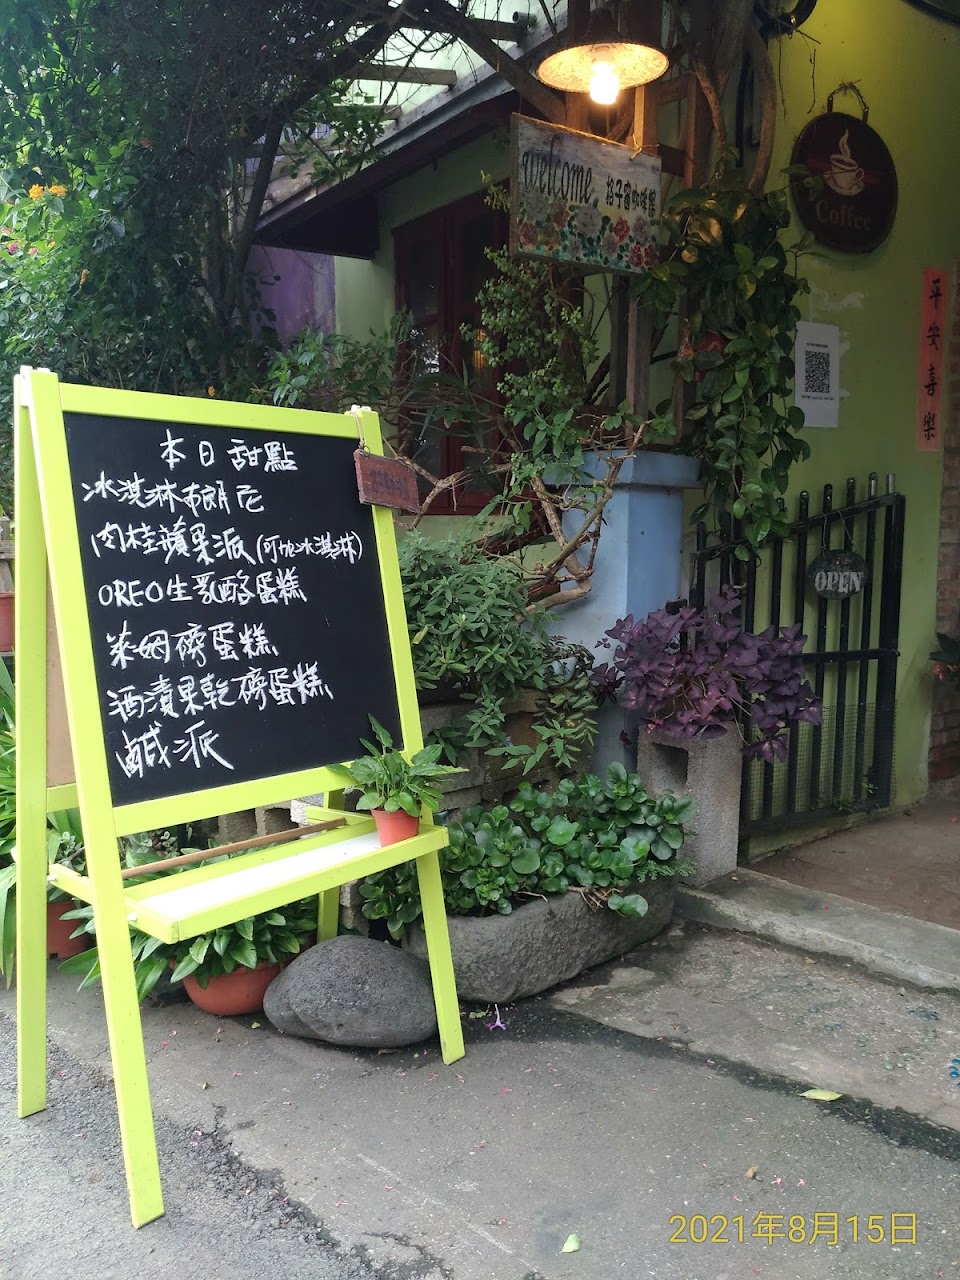 welcome
格子窗咖啡館
Coffee
平安喜樂
本日甜點
冰淇淋布朗尼
肉桂蘋果派(可加冰淇淋)
OREO生乳酪蛋糕
萊姆磅蛋糕
酒漬果乾磅蛋糕
鹹派
OPEN
2021年8月15日